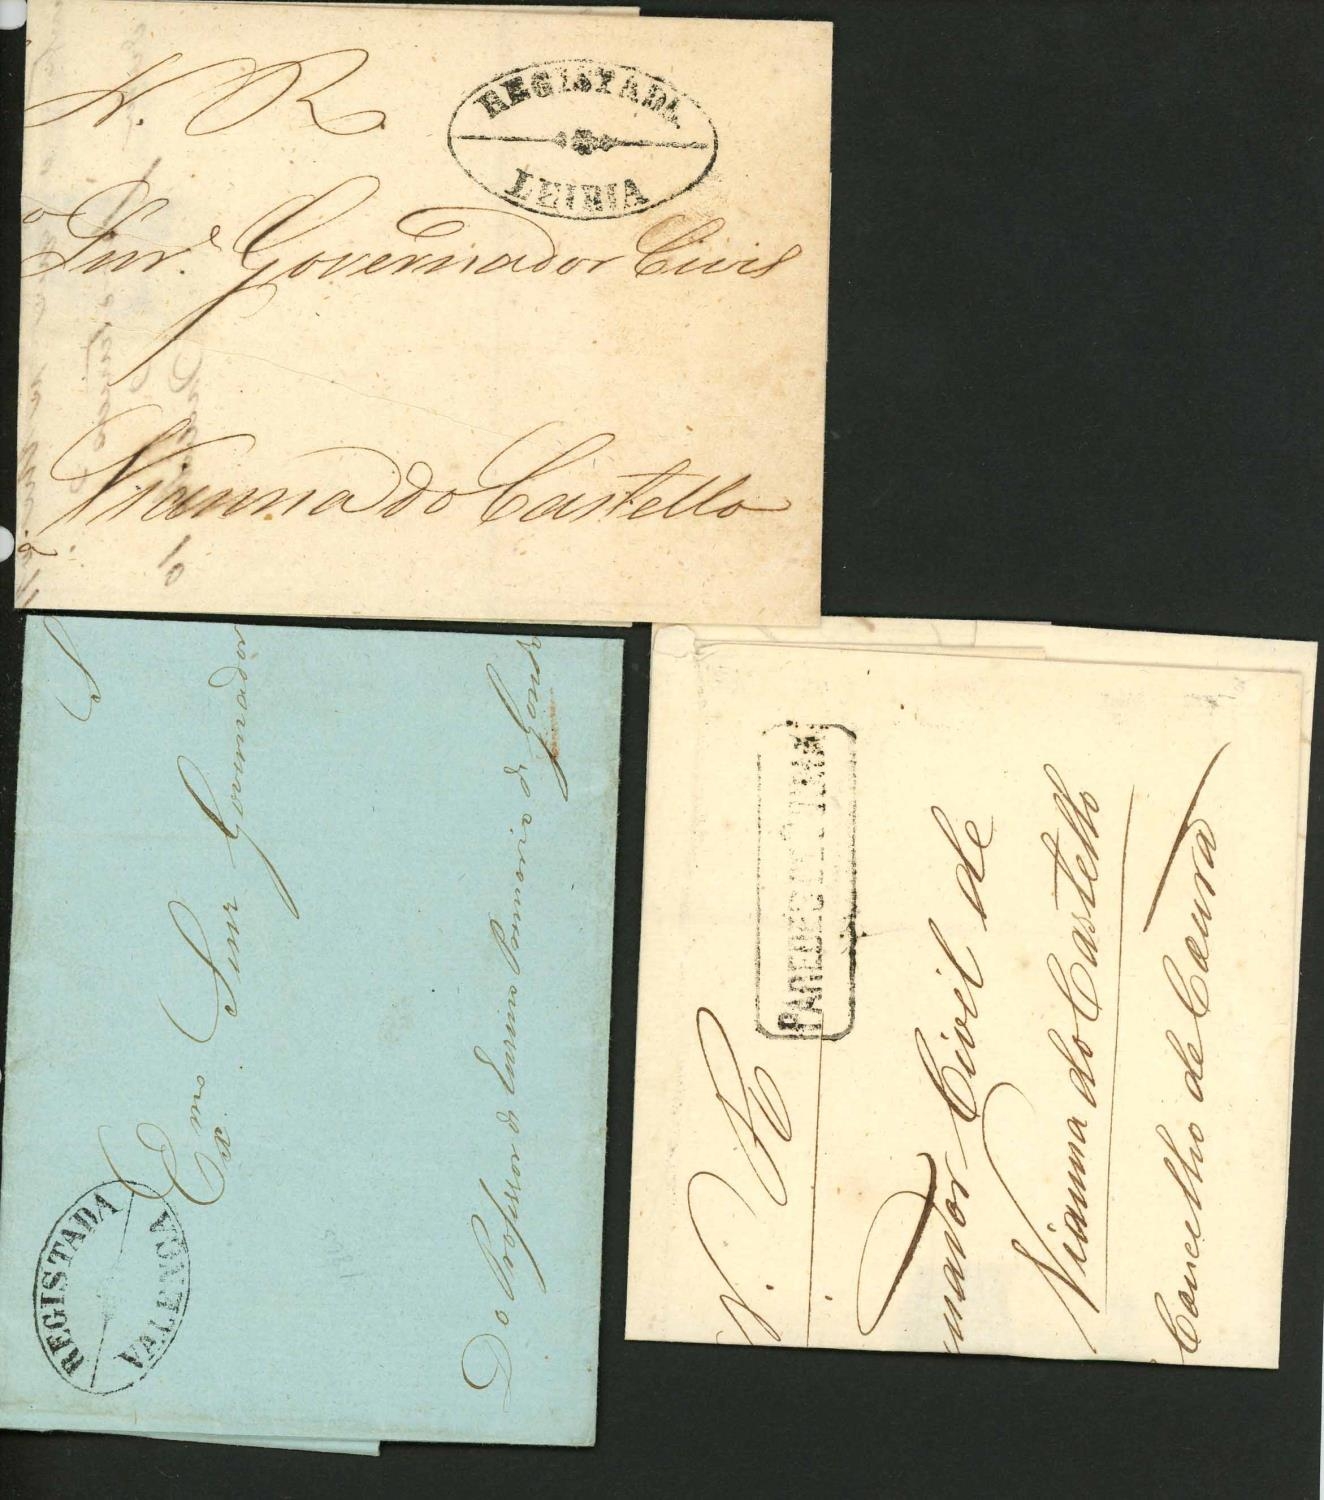 N. R.
REGISTADA
LEIRIA
Snr. Governador Civil
Vianna do Castello
S
REGISTADA
VALENÇA
Exmo Snr Governador
Do Professor de Ensino Primario de
N. R.
PAREDES DE
rnador Civil de
Vianna do Castello
Concelho de Coura